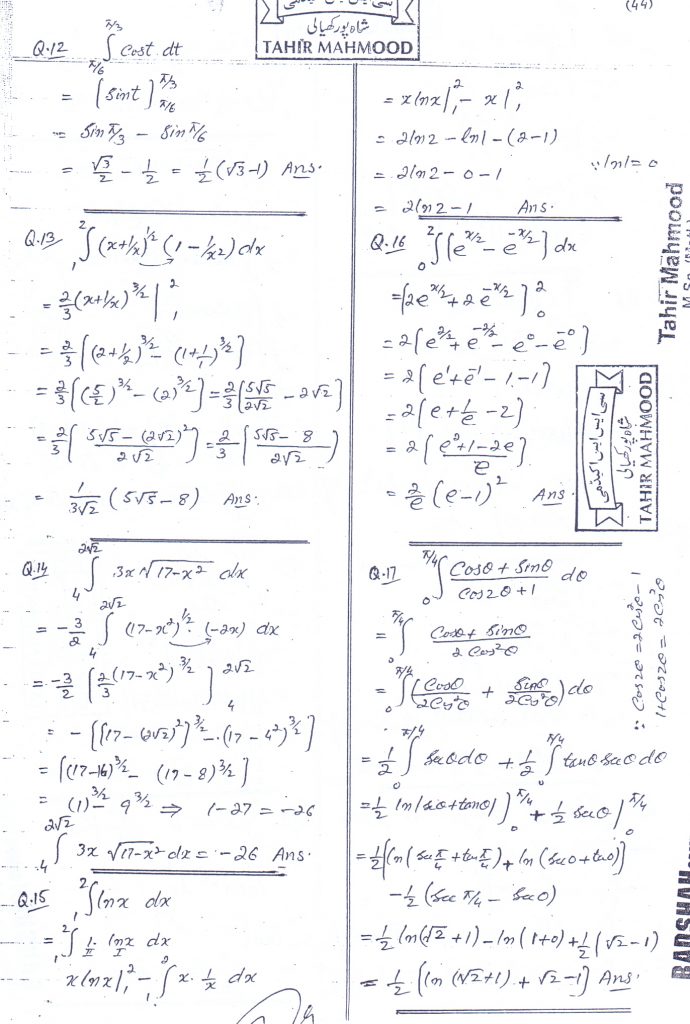 (44)
شاہ پور کھیالی
TAHIR MAHMOOD
Q.12 ∫_{π/6}^{π/3} Cost dt
= [Sint]_{π/6}^{π/3}
= Sin π/3 - Sin π/6
= √3/2 - 1/2 = 1/2 (√3-1) Ans.
Q.13 ∫_1^2 (x+1/x)^{1/2} (1 - 1/x2) dx
= 2/3 (x+1/x)^{3/2} |_1^2
= 2/3 [(2+1/2)^{3/2} - (1+1/1)^{3/2}]
= 2/3 [(5/2)^{3/2} - (2)^{3/2}] = 2/3 [5√5/2√2 - 2√2]
= 2/3 [(5√5 - (2√2)^2)/2√2] = 2/3 [(5√5 - 8)/2√2]
= 1/3√2 (5√5 - 8) Ans.
Q.14 ∫_4^{2√2} 3x √17-x² dx
= -3/2 ∫_4^{2√2} (17-x²)^{1/2} . (-2x) dx
= -3/2 [2/3 (17-x²)^{3/2}]_4^{2√2}
= - [{17 - (2√2)²}^{3/2} - (17 - 4²)^{3/2}]
= [(17-16)^{3/2} - (17-8)^{3/2}]
= (1)^{3/2} - 9^{3/2} ⇒ 1-27 = -26
∫_4^{2√2} 3x √17-x² dx = -26 Ans.
Q.15 ∫_1^2 lnx dx
= ∫_1^2 1. lnx dx
II I
x lnx |_1^2 - ∫_1 x. 1/x dx
= x lnx |_1^2 - x |_1^2
= 2ln2 - ln1 - (2-1)
= 2ln2 - 0 - 1 ∵ ln1 = 0
= 2ln2 - 1 Ans.
Q.16 ∫_0^2 [e^{x/2} - e^{-x/2}] dx
= [2e^{x/2} + 2e^{-x/2}]_0^2
= 2 [e^{2/2} + e^{-2/2} - e^0 - e^{-0}]
= 2 [e^1 + e^{-1} - 1 - 1]
= 2 [e + 1/e - 2]
= 2 [(e²+1-2e)/e]
= 2/e (e-1)² Ans.
Q.17 ∫_0^{π/4} (Cosθ + Sinθ)/(Cos2θ + 1) dθ
= ∫_0^{π/4} (Cosθ + Sinθ)/(2 Cos²θ)
= ∫_0^{π/4} (Cosθ/2Cos²θ + Sinθ/2Cos²θ) dθ
= 1/2 ∫_0^{π/4} Secθ dθ + 1/2 ∫_0^{π/4} tanθ Secθ dθ
= 1/2 ln|secθ + tanθ| |_0^{π/4} + 1/2 Secθ |_0^{π/4}
= 1/2 [ln (Sec π/4 + tan π/4) + ln (Sec0 + tan0)]
- 1/2 (Sec π/4 - Sec0)
= 1/2 ln(√2 + 1) - ln (1+0) + 1/2 (√2 - 1)
= 1/2 [ln (√2+1) + √2 - 1] Ans.
∵ Cos2θ = 2Cos²θ - 1
1+Cos2θ = 2Cos²θ
Tahir Mahmood
سی ایس ایس اکیڈمی
شاہ پور کھیالی
TAHIR MAHMOOD
BADSHAH